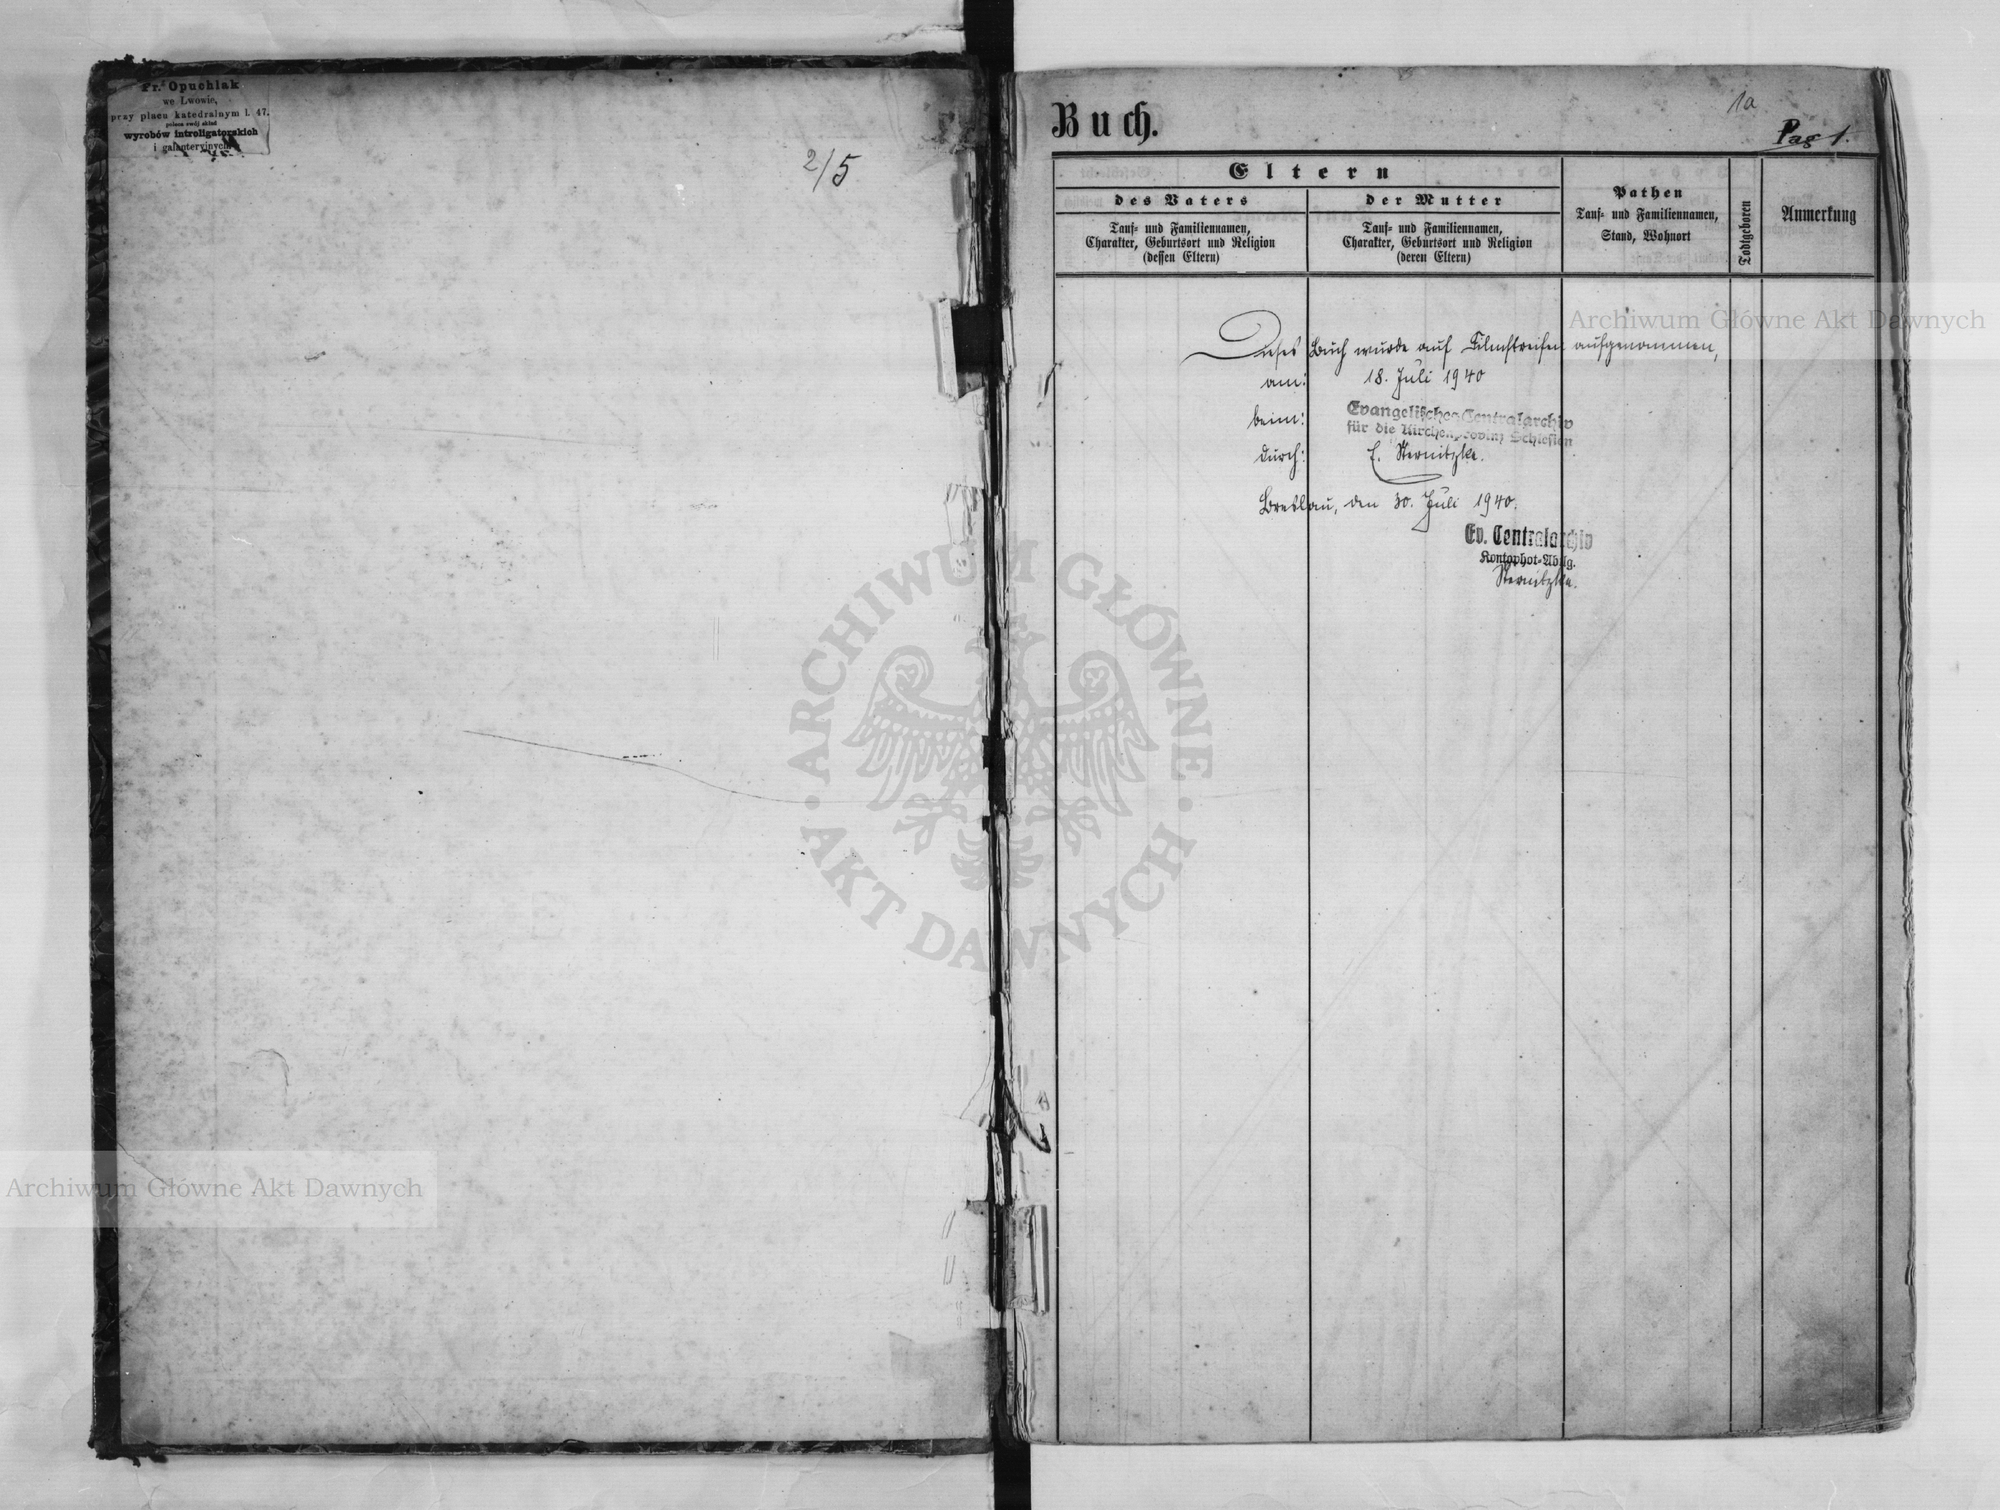 Fr. Opuchlak
we Lwowie,
przy placu katedralnym l. 47.
poleca swój skład
wyrobów introligatorskich
i galanteryjnych
2/5
Buch.
1a
Pag 1.
Eltern
des Vaters
der Mutter
Tauf- und Familiennamen,
Charakter, Geburtsort und Religion
(dessen Eltern)
Tauf- und Familiennamen,
Charakter, Geburtsort und Religion
(deren Eltern)
Pathen
Tauf- und Familiennamen,
Stand, Wohnort
Todtgeboren
Anmerkung
Dieses Buch wurde auf Filmstreifen aufgenommen,
am: 18. Juli 1940
beim: Evangelisches Centralarchiv
für die Kirchenprovinz Schlesien
durch: E. Sternitzke.
Breslau, den 30. Juli 1940.
Ev. Centralarchiv
Kontophot-Abtlg.
Sternitzke.
Archiwum Główne Akt Dawnych
ARCHIWUM GŁÓWNE
· AKT DAWNYCH ·
Archiwum Główne Akt Dawnych